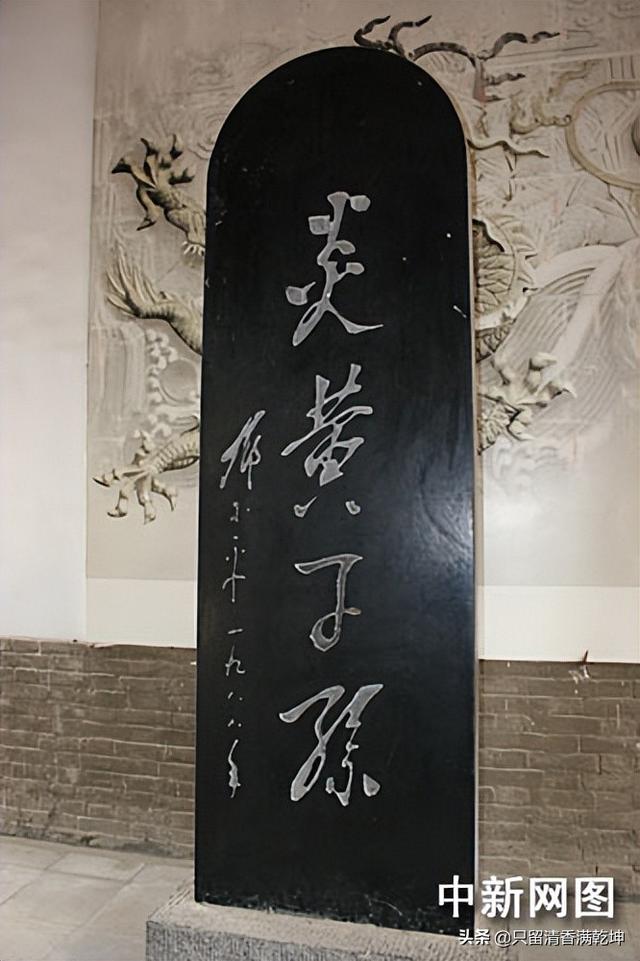 炎黄子孙
邓小平 一九八八年
中新网图
头条 @只留清香满乾坤